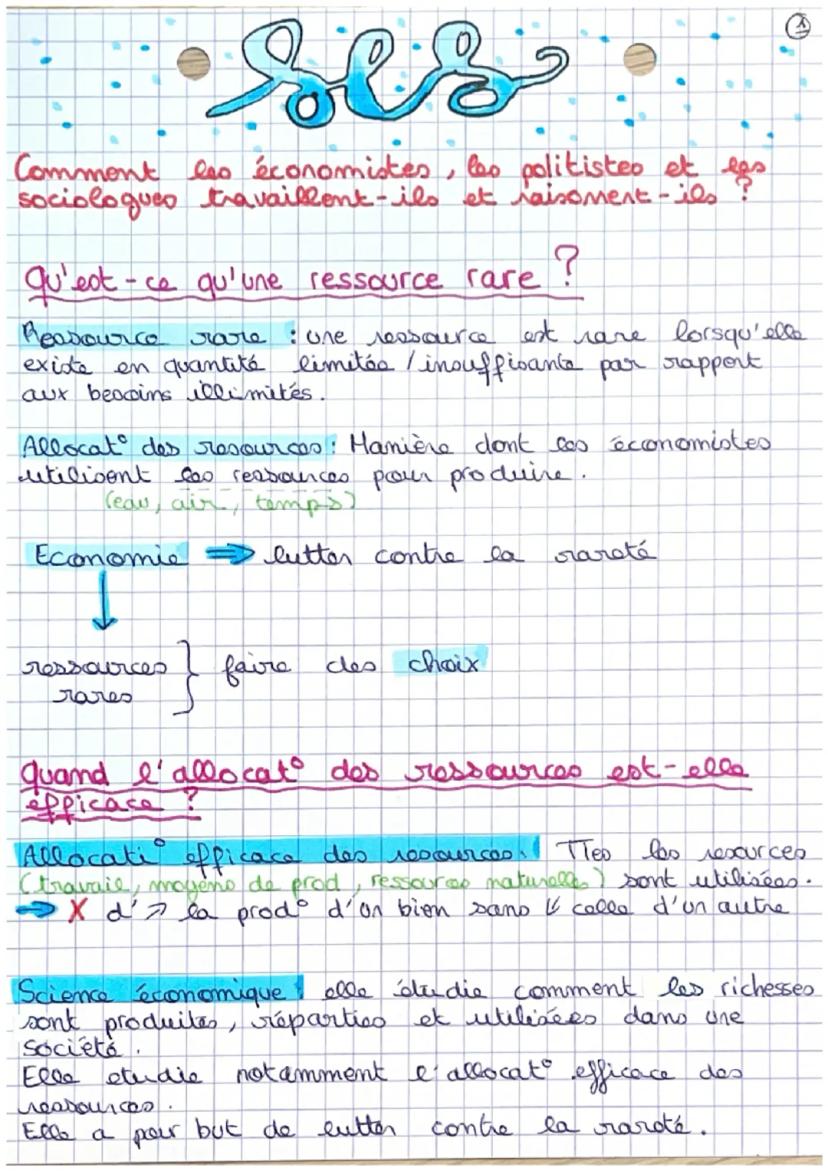 1
SES
Comment les économistes, les politistes et les
sociologues travaillent-ils et raisonnent-ils ?
Qu'est-ce qu'une ressource rare ?
Ressource rare : une ressource est rare lorsqu'elle
existe en quantité limitée / insuffisante par rapport
aux besoins illimités.
Allocat° des resources : Manière dont les économistes
utilisent les ressources pour produire.
(eau, air, temps)
Economie ⇒ lutter contre la rareté
↓
ressources } faire des choix
rares
Quand l'allocat° des ressources est-elle
efficace ?
Allocati° efficace des resources : Ttes les resources
(travail, moyens de prod, ressources naturelles) sont utilisées.
⇒ X d'↗ la prod° d'un bien sans ↙ celle d'un autre
Science économique : elle étudie comment les richesses
sont produites, réparties et utilisées dans une
société.
Elle etudie notamment l'allocat° efficace des
ressources.
Elle a pour but de lutter contre la rareté.